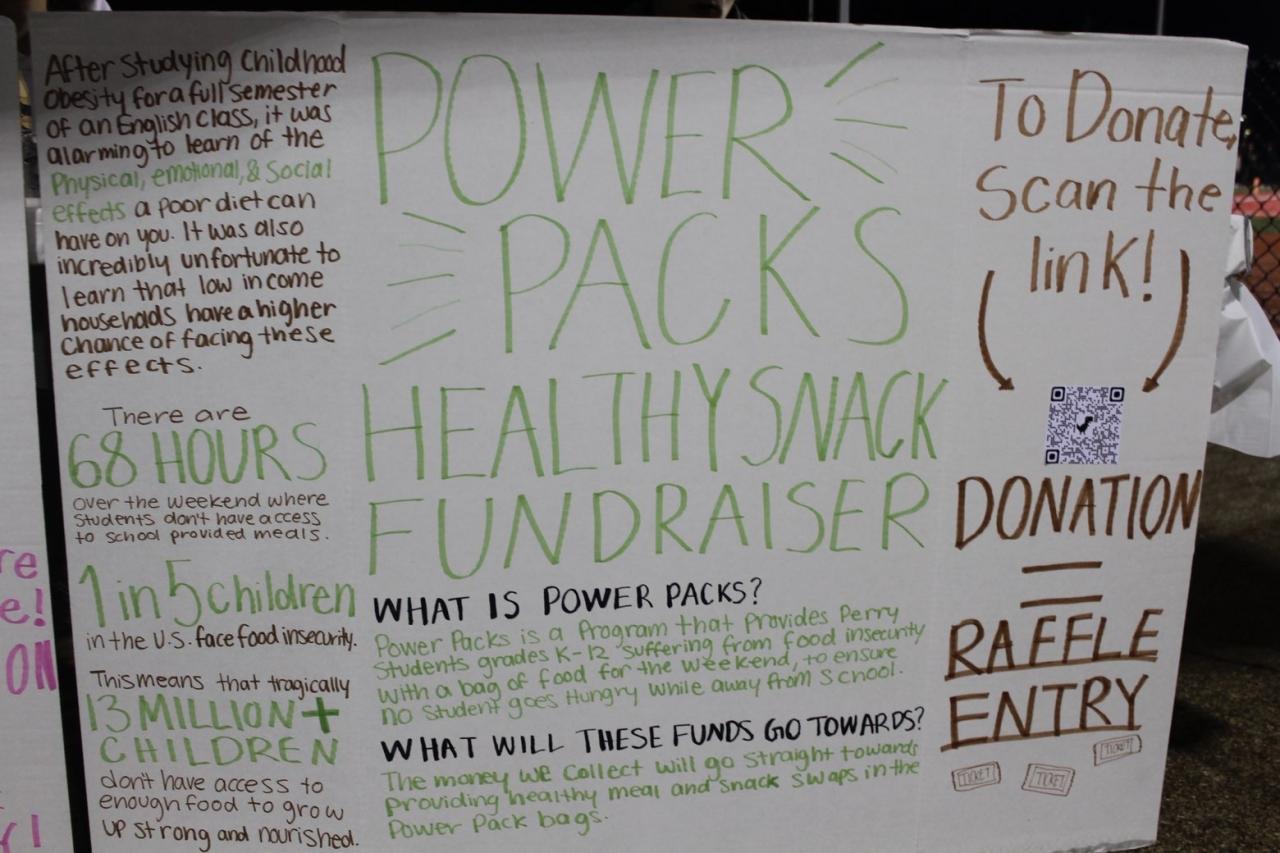 After Studying Childhood
Obesity for a full semester
of an English class, it was
alarming to learn of the
Physical, emotional, & Social
effects a poor diet can
have on you. It was also
incredibly unfortunate to
learn that low income
households have a higher
Chance of facing these
effects.
There are
68 HOURS
over the weekend where
Students don't have access
to school provided meals.
1 in 5 children
in the U.S. face food insecurity.
This means that tragically
13 MILLION+
CHILDREN
don't have access to
enough food to grow
up strong and nourished.
POWER
PACKS
HEALTHY SNACK
FUNDRAISER
WHAT IS POWER PACKS?
Power Packs is a Program that Provides Perry
Students grades K-12 suffering from food insecurity
with a bag of food for the weekend, to ensure
no student goes Hungry while away from School.
WHAT WILL THESE FUNDS GO TOWARDS?
The money we collect will go straight towards
Providing healthy meal and snack swaps in the
Power Pack bags.
To Donate,
Scan the
link!
DONATION
=
RAFFLE
ENTRY
TICKET
TICKET
TICKET
re
e!
ON